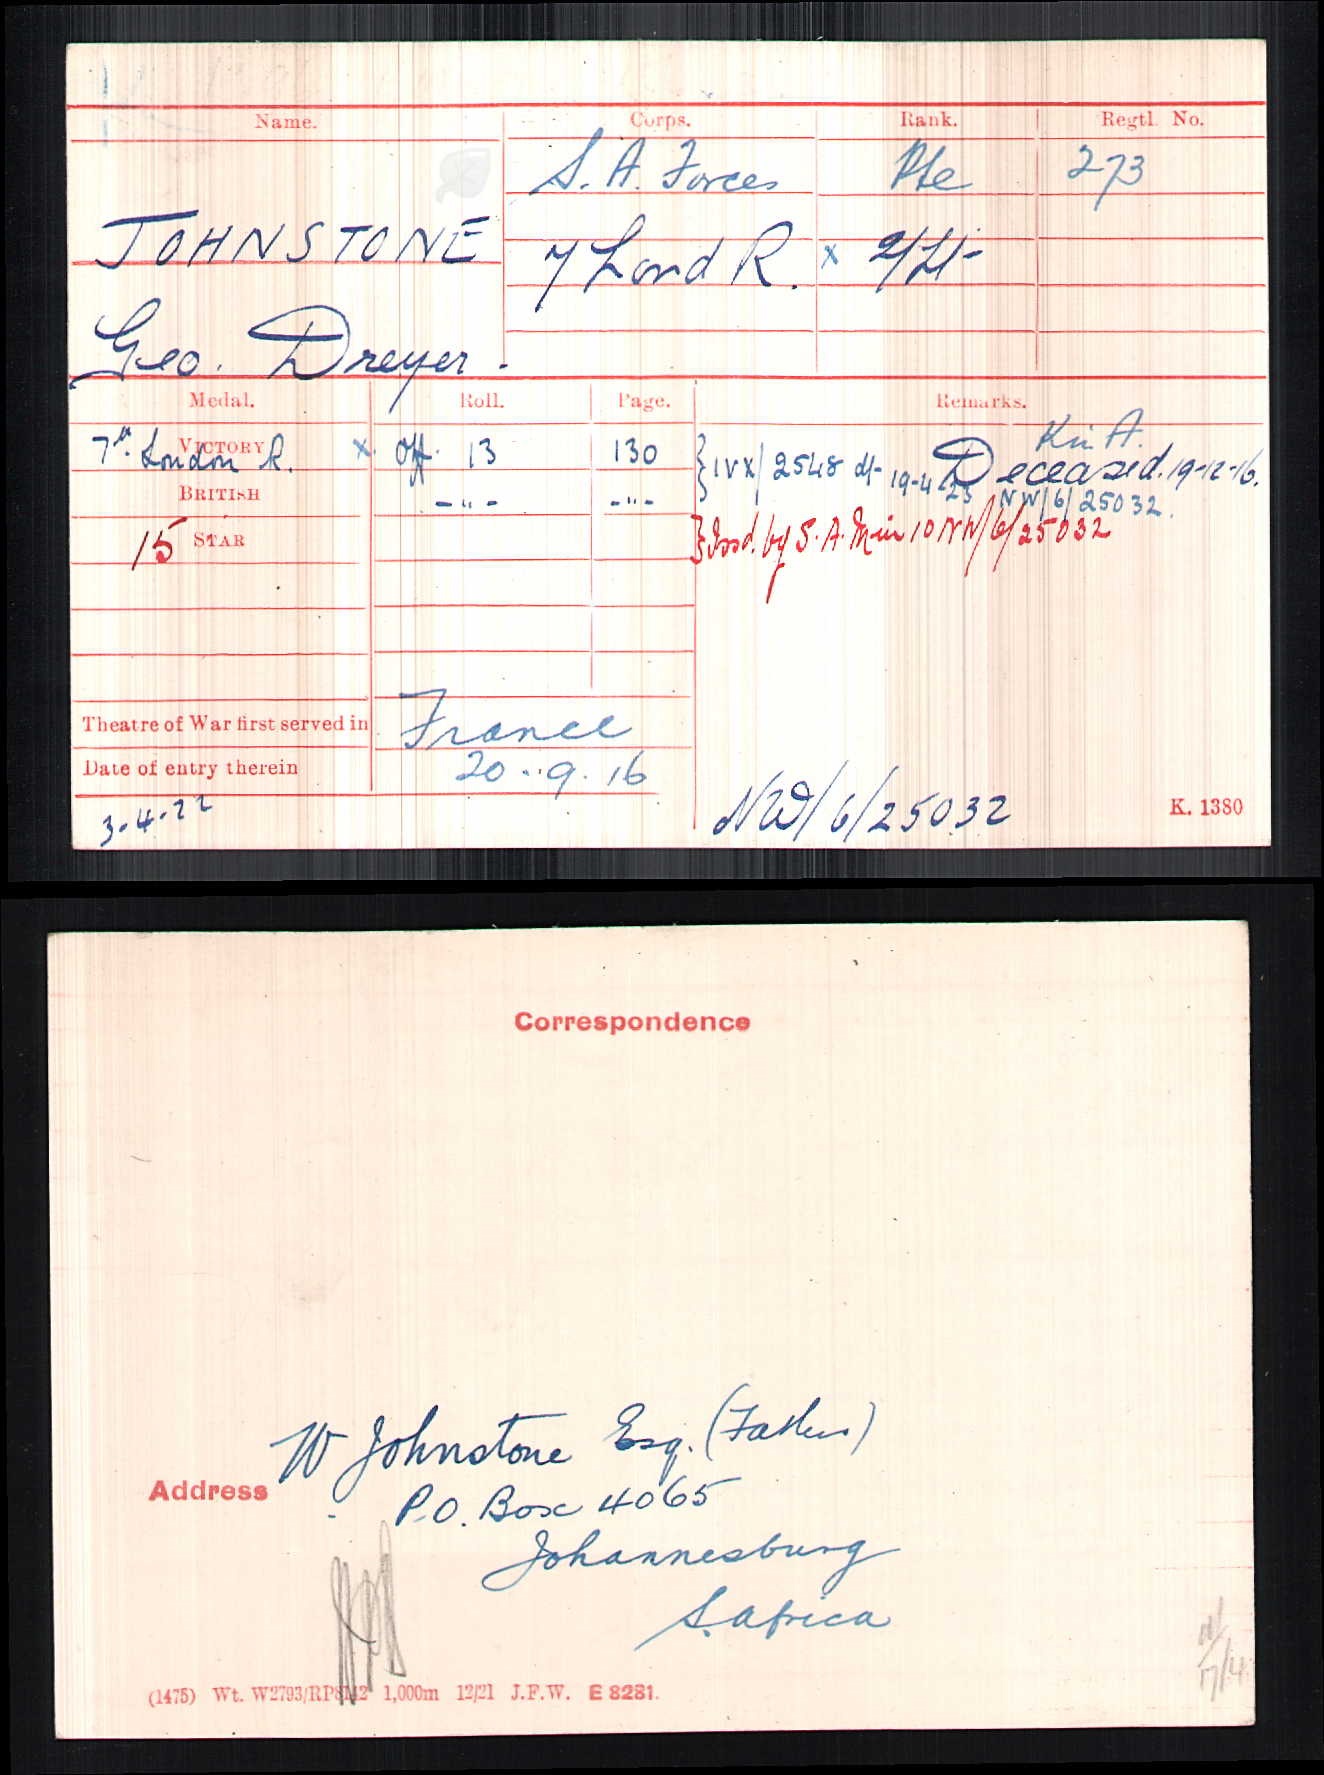 Name. Corps. Rank. Regtl. No.
S. A. Forces Pte 273
JOHNSTONE
7 Lond R. x 2/Lt
Geo. Dreyer.
Medal. Roll. Page. Remarks.
K in A.
VICTORY
7th London R. x. Off. 13 130 } IVX/2548 df- 19-4-23 Deceased. 19-12-16.
BRITISH -"- -"- NW/6/25032.
15 STAR } Issd. by S. A. 10 NW/6/25032
Theatre of War first served in France
Date of entry therein 20.9.16
3-4-22 NW/6/25032 K. 1380
Correspondence
W Johnstone Esq. (Father)
Address
P.O. Box 4065
Johannesburg
S. Africa
(1475) Wt. W2793/RP8142 1,000m 12/21 J.F.W. E 8281.